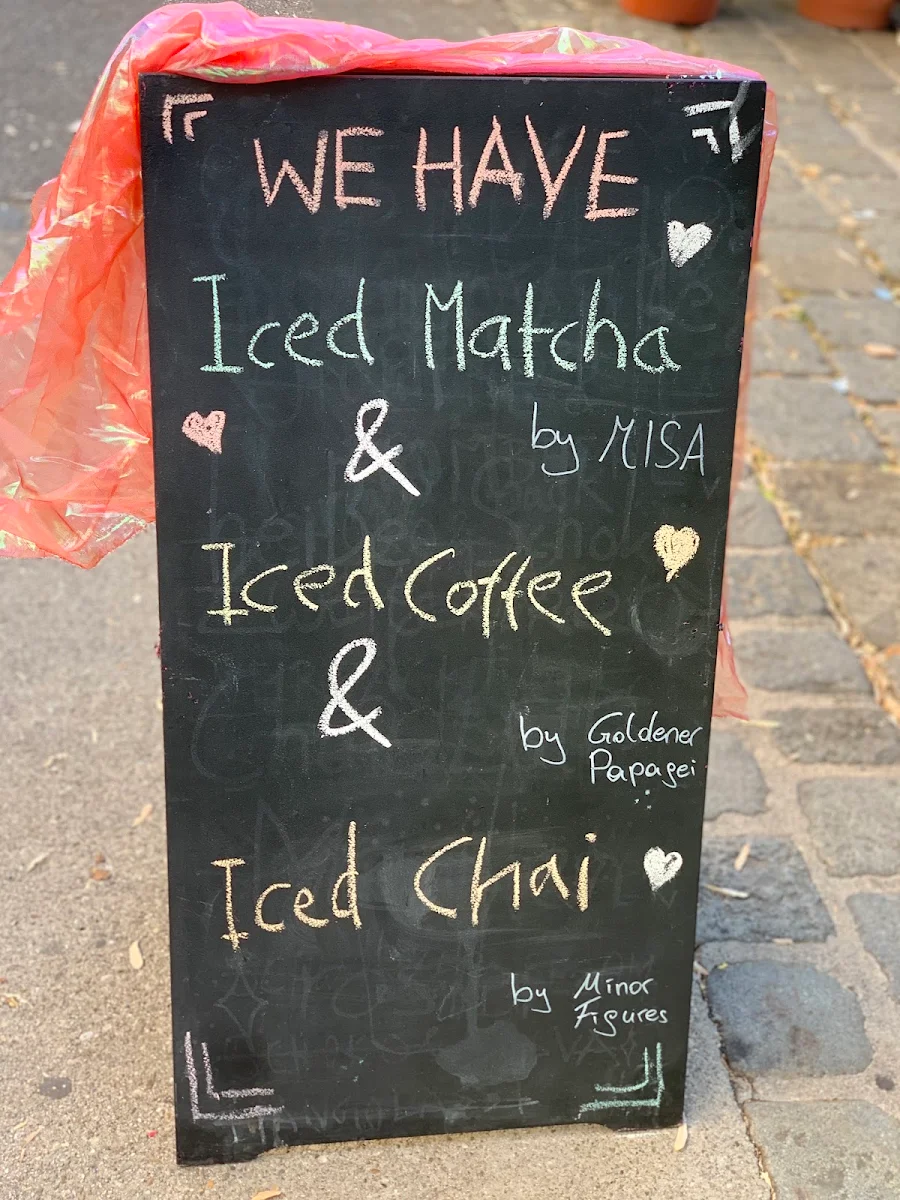 WE HAVE
Iced Matcha
& by MISA
Iced Coffee
&
by Goldener
Papagei
Iced Chai
by Minor
Figures